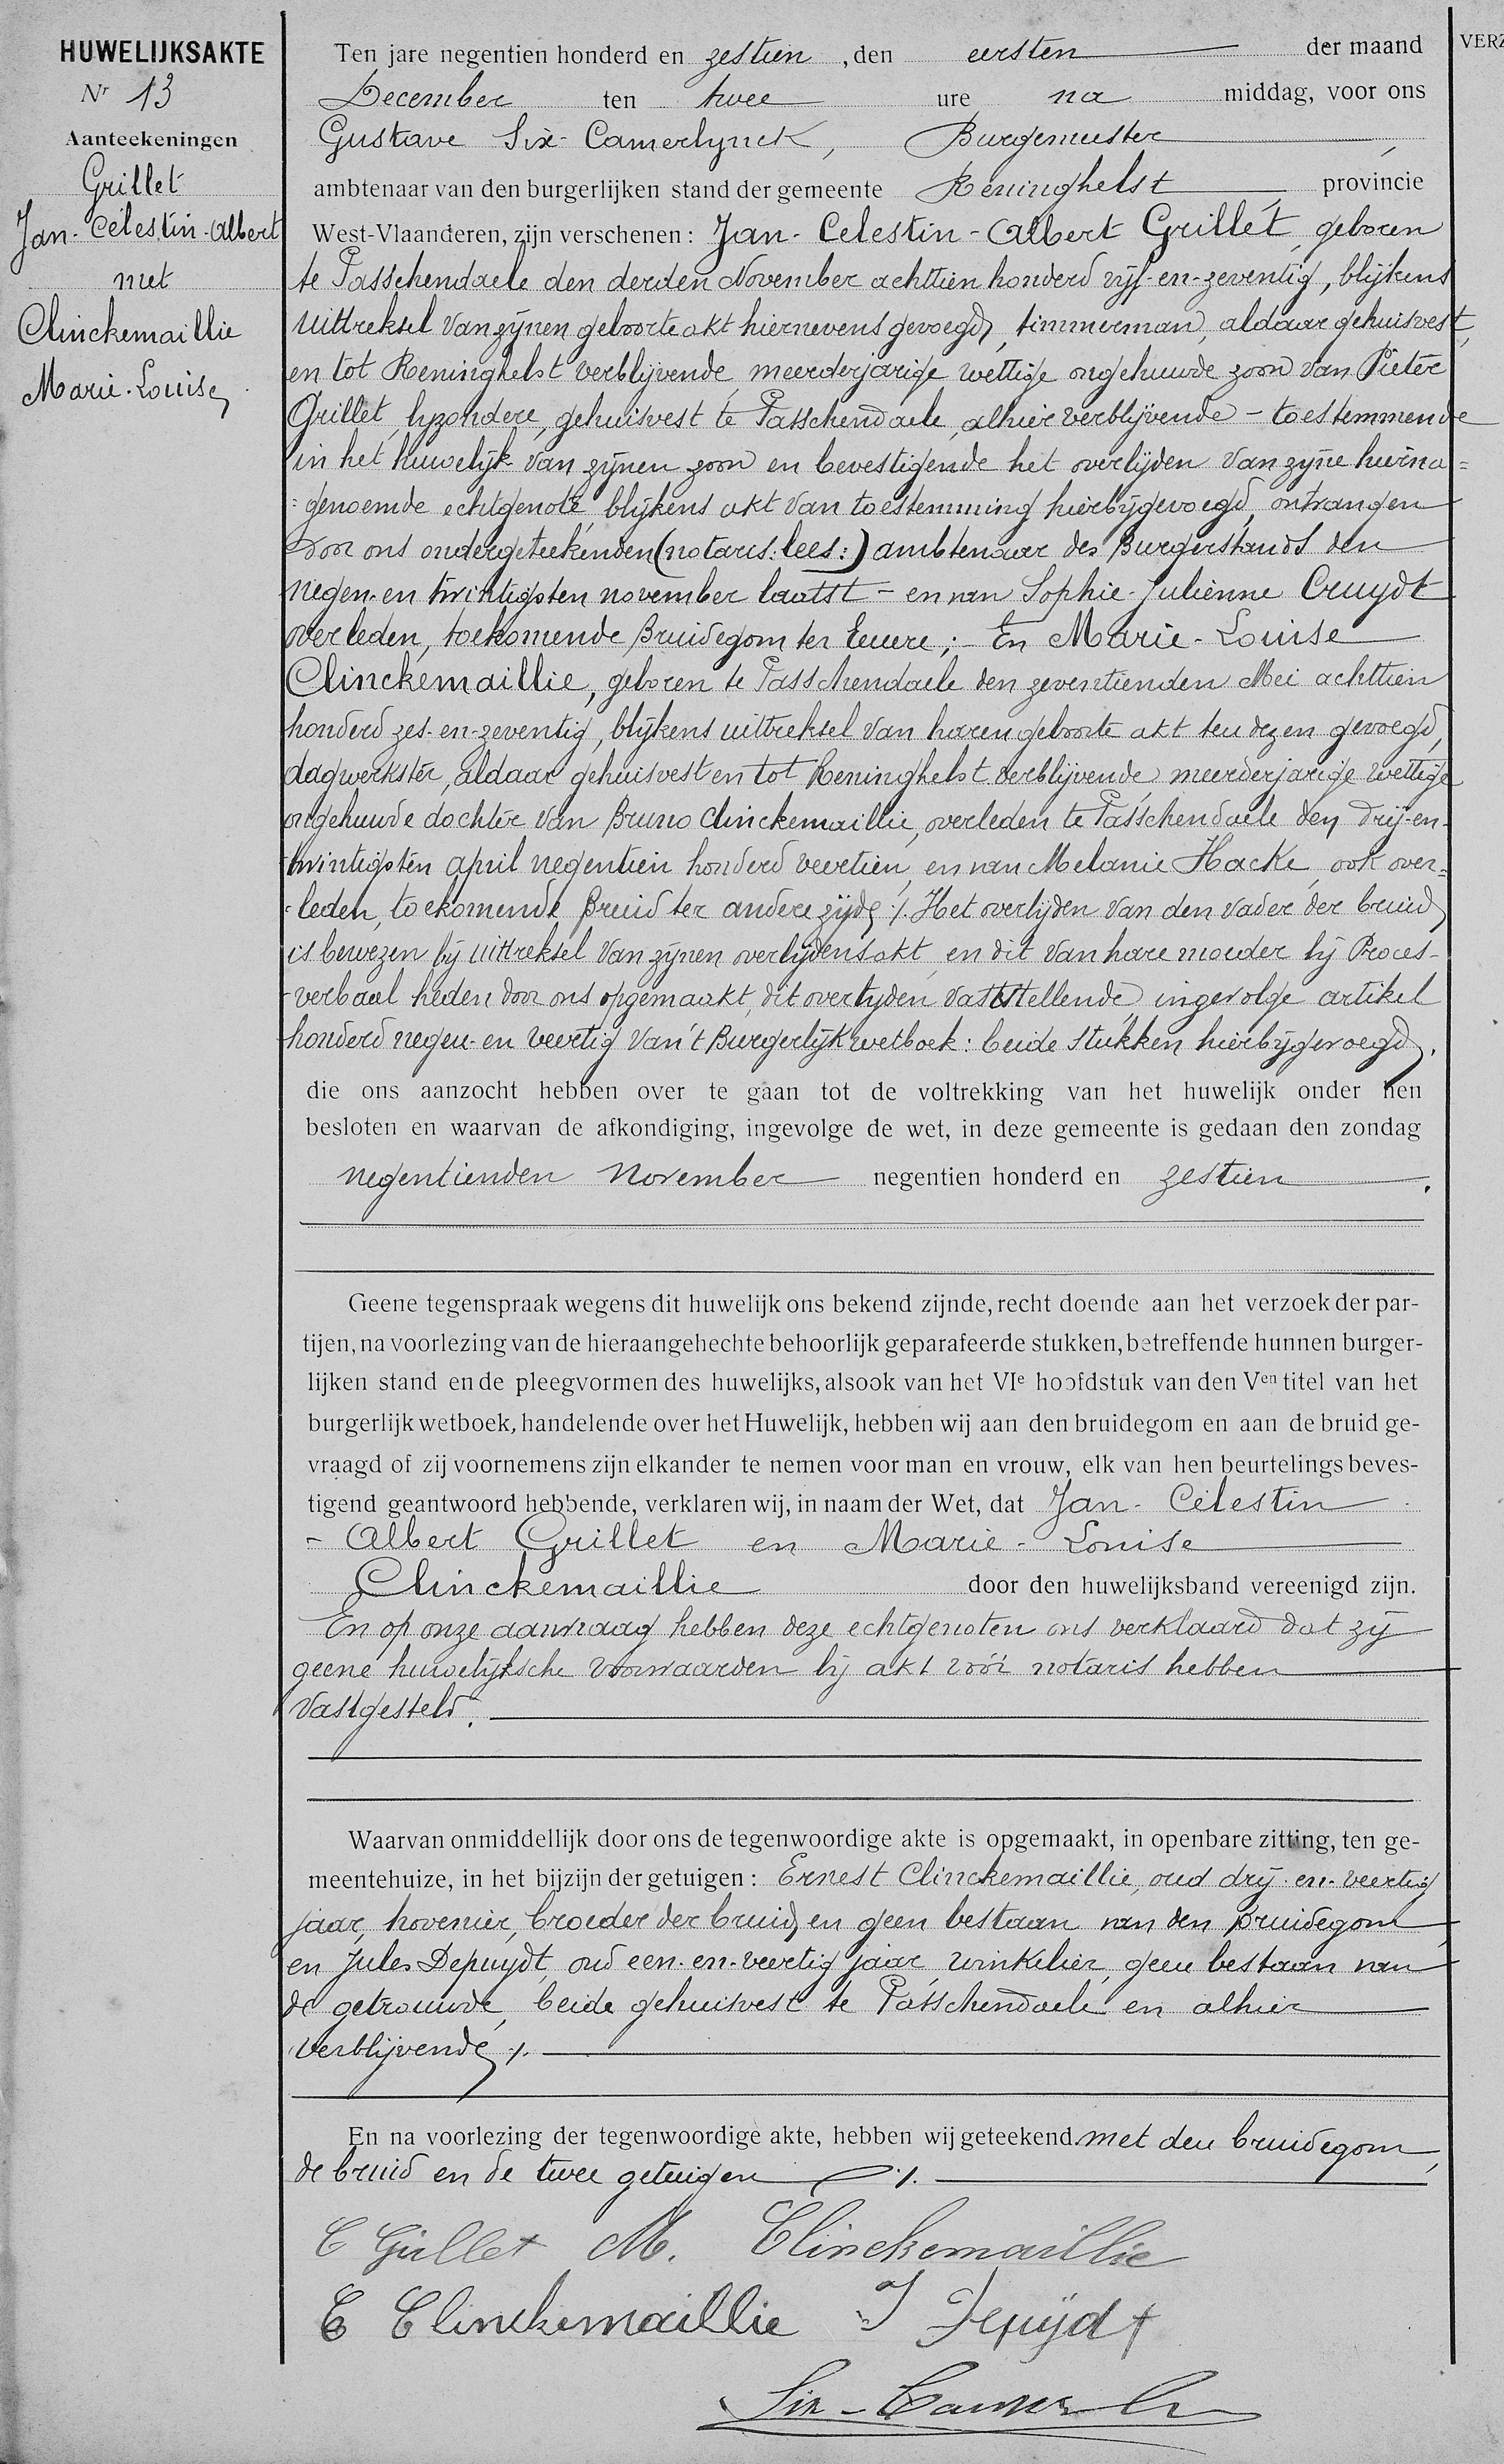 HUWELIJKSAKTE
Nr 13
Aanteekeningen
Grillet
Jan-Célestin-Albert
met
Clinckemaillie
Marie-Louise
VERZ
Ten jare negentien honderd en zestien, den eersten der maand
December ten twee ure na middag, voor ons
Gustave Six-Camerlynck, Burgemeester,
ambtenaar van den burgerlijken stand der gemeente Reninghelst provincie
West-Vlaanderen, zijn verschenen: Jan-Celestin-Albert Grillet, geboren
te Passchendaele den derden November achttien honderd vijf-en-zeventig, blijkens
uittreksel van zijnen geboorteakt hiernevens gevoegd, timmerman, aldaar gehuisvest,
en tot Reninghelst verblijvende, meerderjarige wettige ongehuwde zoon van Pieter
Grillet, byzondere, gehuisvest te Passchendaele, alhier verblijvende - toestemmende
in het huwelijk van zijnen zoon en bevestigende het overlijden van zijne hierna=
=genoemde echtgenote, blijkens akt van toestemming hierbijgevoegd, ontvangen
door ons ondergeteekenden (notaris: lees:) ambtenaar des Burgerstands den
negen-en twintigsten november laatst - en van Sophie-Julienne Cruydt
overleden, toekomende Bruidegom ter eenere; - En Marie-Louise
Clinckemaillie, geboren te Passchendaele den zeventienden Mei achttien
honderd zes-en-zeventig, blijkens uittreksel van haren geboorte akt ten dezen gevoegd,
dagwerkster, aldaar gehuisvest en tot Reninghelst verblijvende, meerderjarige wettige
ongehuwde dochter van Bruno Clinckemaillie, overleden te Passchendaele den drij-en-
twintigsten april negentien honderd veertien, en van Melanie Hacke, ook over=
-leden, toekomende Bruid ter andere zijde ./. Het overlijden van den vader der bruid
is bewezen bij uittreksel van zijnen overlijdensakt, en dit van hare moeder bij Proces-
-verbaal heden door ons opgemaakt, dit overlijden vaststellende, ingevolge artikel
honderd negen-en veertig van 't Burgerlijk wetboek: beide stukken hierbijgevoegd.
die ons aanzocht hebben over te gaan tot de voltrekking van het huwelijk onder hen
besloten en waarvan de afkondiging, ingevolge de wet, in deze gemeente is gedaan den zondag
negentienden November negentien honderd en zestien.
Geene tegenspraak wegens dit huwelijk ons bekend zijnde, recht doende aan het verzoek der par-
tijen, na voorlezing van de hieraangehechte behoorlijk geparafeerde stukken, betreffende hunnen burger-
lijken stand en de pleegvormen des huwelijks, alsook van het VIe hoofdstuk van den Ven titel van het
burgerlijk wetboek, handelende over het Huwelijk, hebben wij aan den bruidegom en aan de bruid ge-
vraagd of zij voornemens zijn elkander te nemen voor man en vrouw, elk van hen beurtelings beves-
tigend geantwoord hebbende, verklaren wij, in naam der Wet, dat Jan-Célestin
- Albert Grillet en Marie-Louise
Clinckemaillie door den huwelijksband vereenigd zijn.
En op onze aanvraag hebben deze echtgenoten ons verklaard dat zij
geene huwelijksche voorwaarden bij akt vóór notaris hebben
vastgesteld.
Waarvan onmiddellijk door ons de tegenwoordige akte is opgemaakt, in openbare zitting, ten ge-
meentehuize, in het bijzijn der getuigen: Ernest Clinckemaillie, oud drij-en-veertig
jaar, hovenier, broeder der bruid, en geen bestaan van den Bruidegom,
en Jules Depuydt, oud een-en-veertig jaar, winkelier, geen bestaan van
de getrouwde, beide gehuisvest te Passchendaele en alhier
verblijvende ./.
En na voorlezing der tegenwoordige akte, hebben wij geteekend. met den bruidegom,
de bruid en de twee getuigen ./.
C Grillet M. Clinckemaillie
E Clinckemaillie J Depuydt
Six-Camerlynck